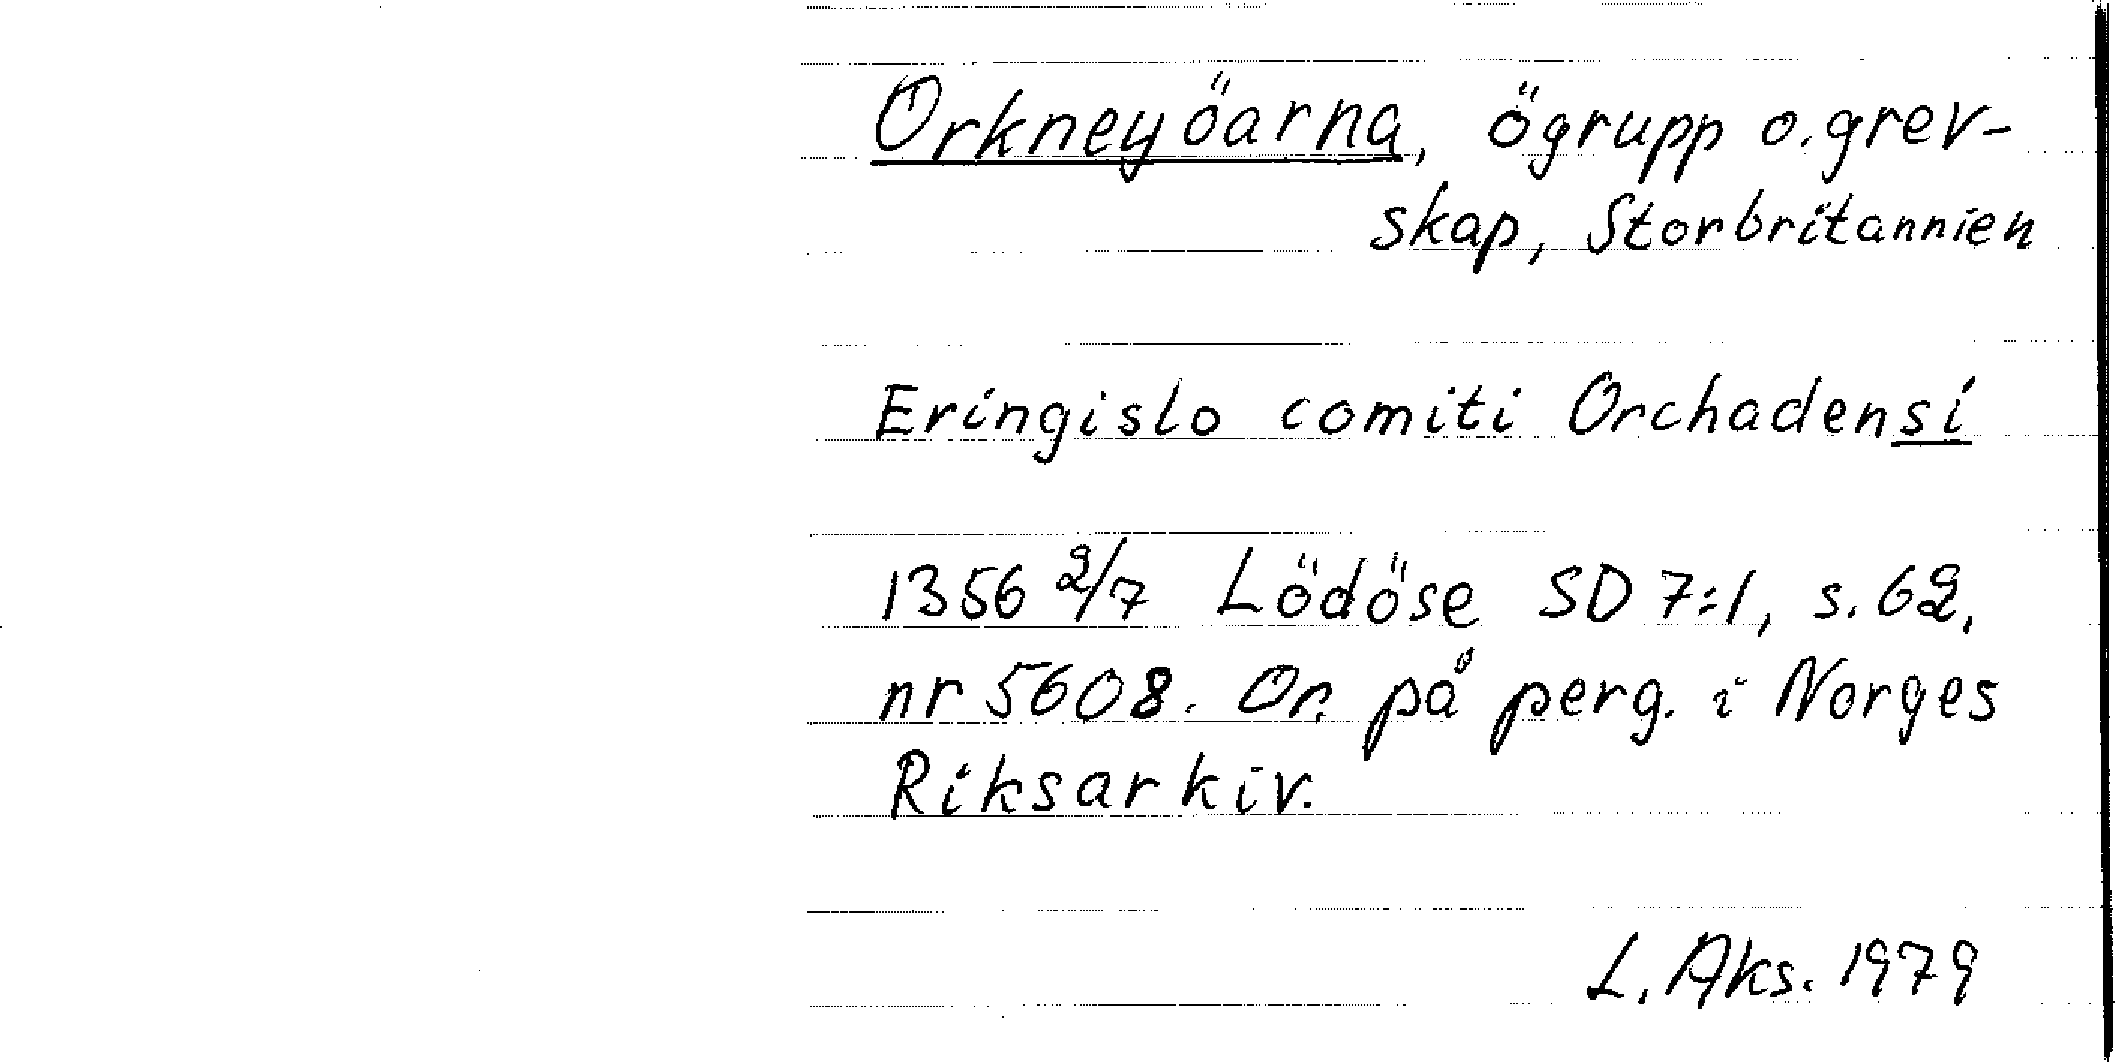 Orkneyöarna, ögrupp o. grev-
skap, Storbritannien
Eringislo comiti Orchadensi
1356 2/7 Lödöse SD 7:1, s. 62,
nr 5608. Or. på perg. i Norges
Riksarkiv.
L. Aks. 1979